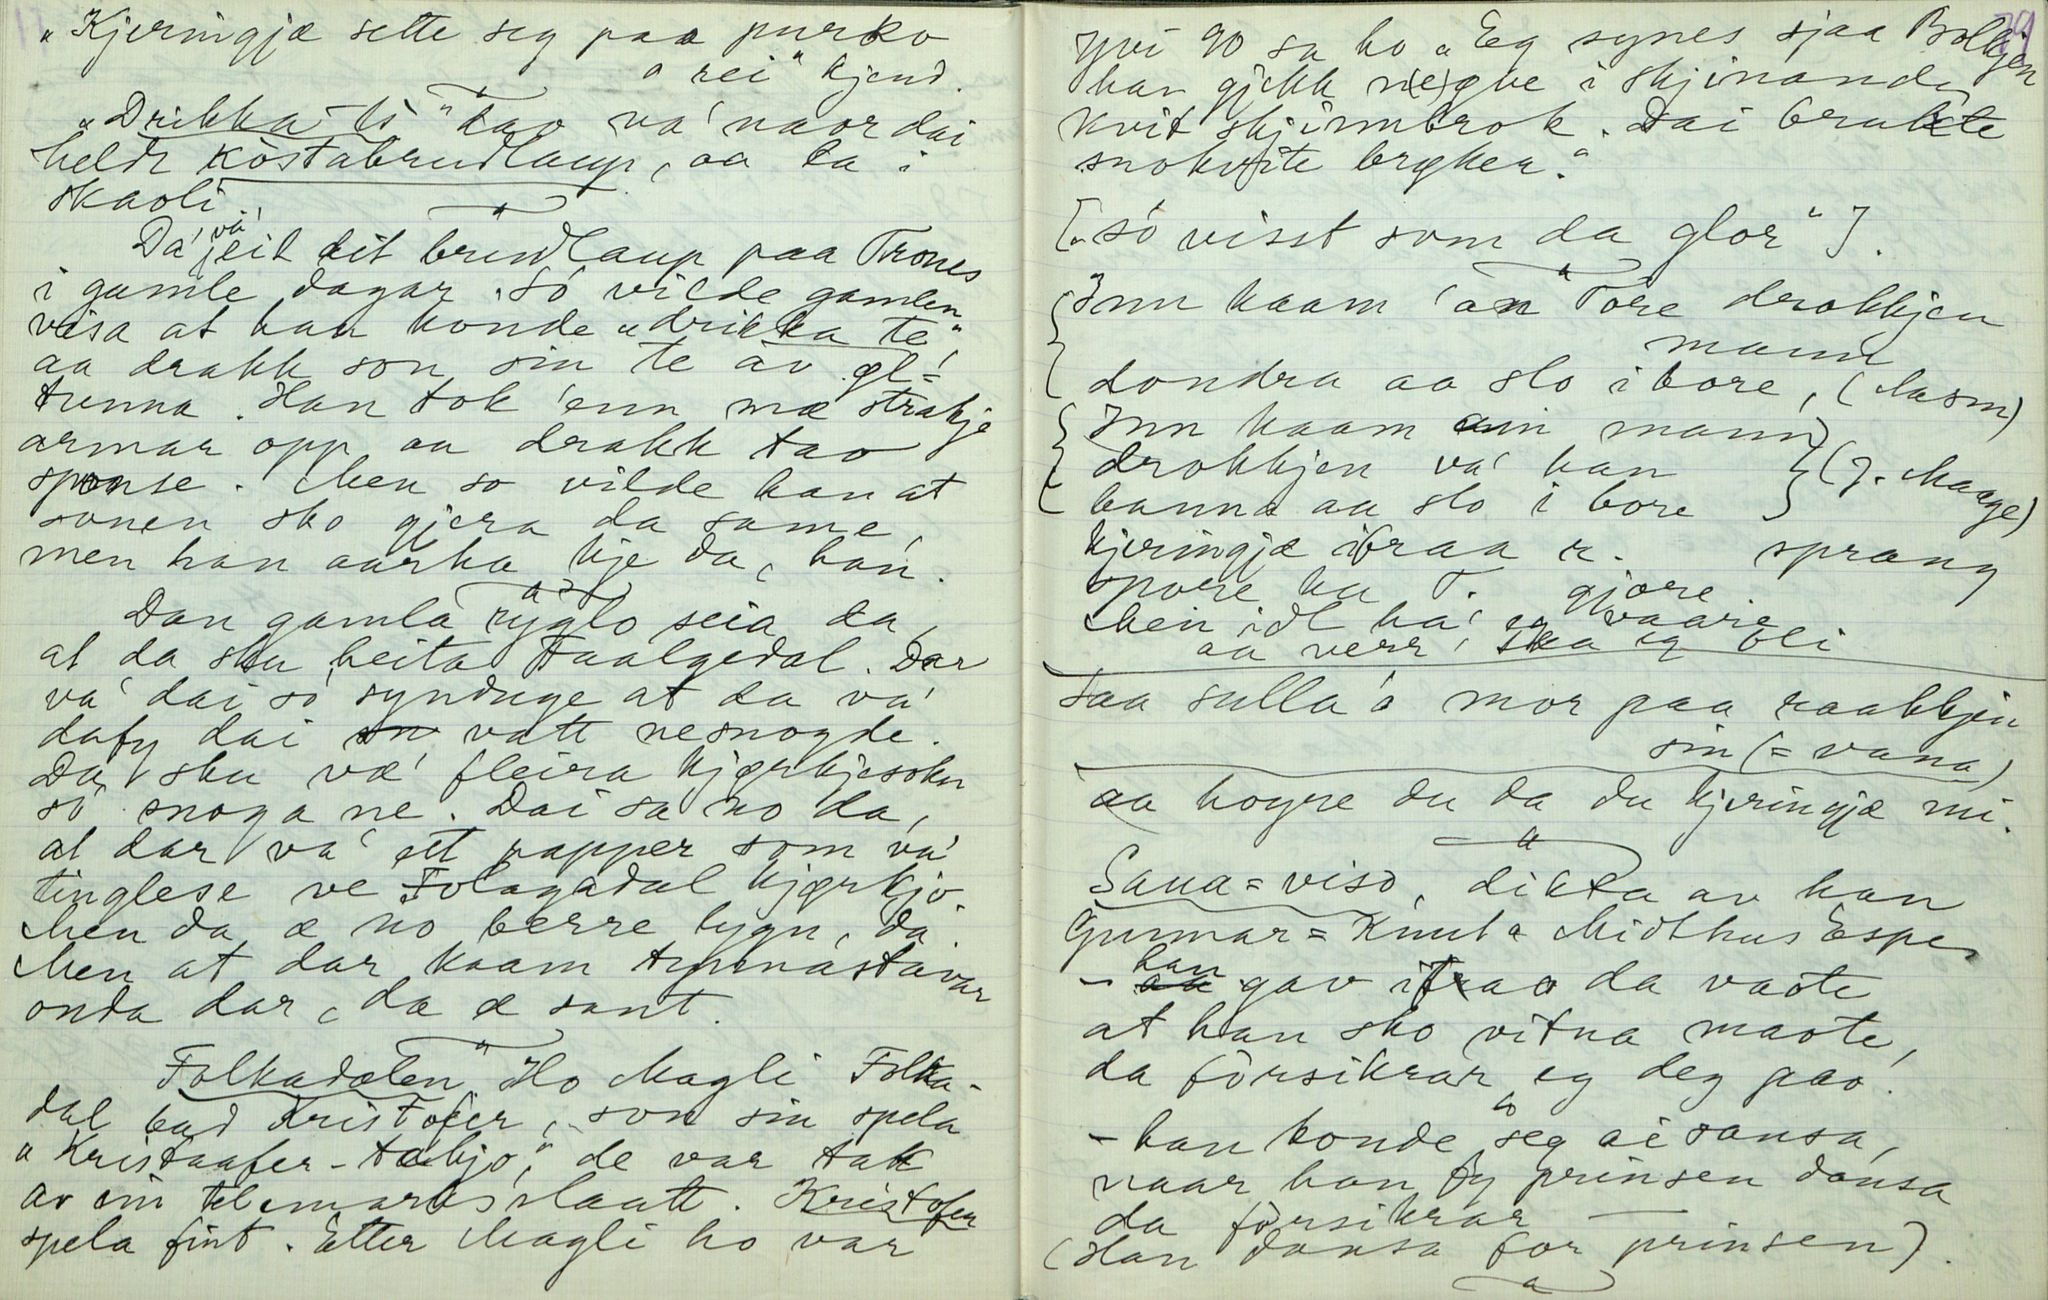 "Kjeringjæ sette seg paa purko
a rei" kjend.
"Drikka te" tao va' naar dai
heldt kòstabrudlaup, aa ha i
skaoli.
Da' va' eit brudlaup paa Trones
i gamle dagar. Só vilde gamlen
visa at han konde "drikka te"
aa drakk son sin te av øl=
tunna. Han tok 'enn mæ strakje
armar opp aa drakk tao
sponse. Men so vilde han at
sonen sko gjera da same,
men han aarka kje da, han.
Dan gamla ryglo seia da,
at da sku heita Taalgedal. Dar
va' dai só synduge at da va'
dafy dai vatt nesnogde.
Da sku væ' fleira kjørkjesokn
só snoga ne. Dai sa no da,
at dar va' ett papper som va'
tinglese ve Folagadal kjørkjo.
Men da æ no berre lygn, da.
Men at dar kaam tynnastavar
onda dar, da æ sant.
Folkadalen. Ho Magli Folka-
dal bad Kristofer, son sin spela
"Kristaafer-tækjo", de var tak
av ein telemarksslaatt. Kristofer
spela fint. Etter Magli ho var
yvi 90 sa ho "Eg synes sjaa Bolkjen
han gjekk n(e)gve i skjinande
kvit skjinnbrok. Dai brukte
snokvite brøker."
["só visst som da glor"].
Inn kaam 'an Tore drokkjen
mann
dondra aa slo i bore, (Masm)
Inn kaam ain mann
drokkjen va' han
banna aa slo i bore (J. Maage)
kjeringjæ ifraa r. sprang
spore ka T. gjore
Men idl ha' eg vaare
aa verr' ska eg bli
Saa sulla 'o mor paa raakkjen
sin (= vana)
aa høyre du da du kjeringjæ mi.
Saua=viso, dikta av han
Gunnar= Knut Midthus Espe
- han gav ifrao da vaote
at han sko vitna maote,
da fórsikrar eg deg pao.
- han konde seg ai sansa,
naar han fy prinsen dansa
da fórsikrar —
(Han dansa for prinsen).